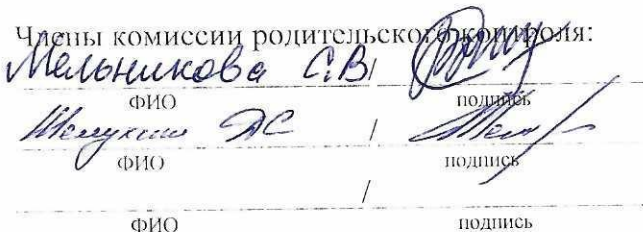 Члены комиссии родительского контроля:
Мельникова С.В. /
ФИО подпись
ДС /
ФИО подпись
/
ФИО подпись